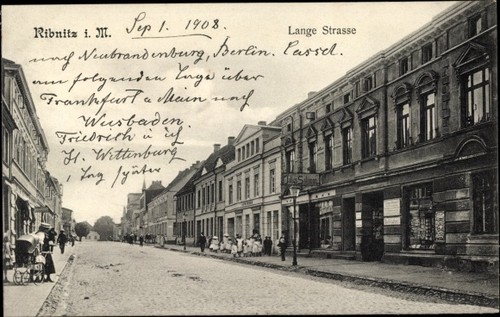 Ribnitz i. M.
Sep 1. 1908.
Lange Strasse
nach Neubrandenburg, Berlin. Cassel
am folgenden Tage über
Frankfurt a Main nach
Wiesbaden.
Friedrich u ich
H. Wittenburg
1 Tag später